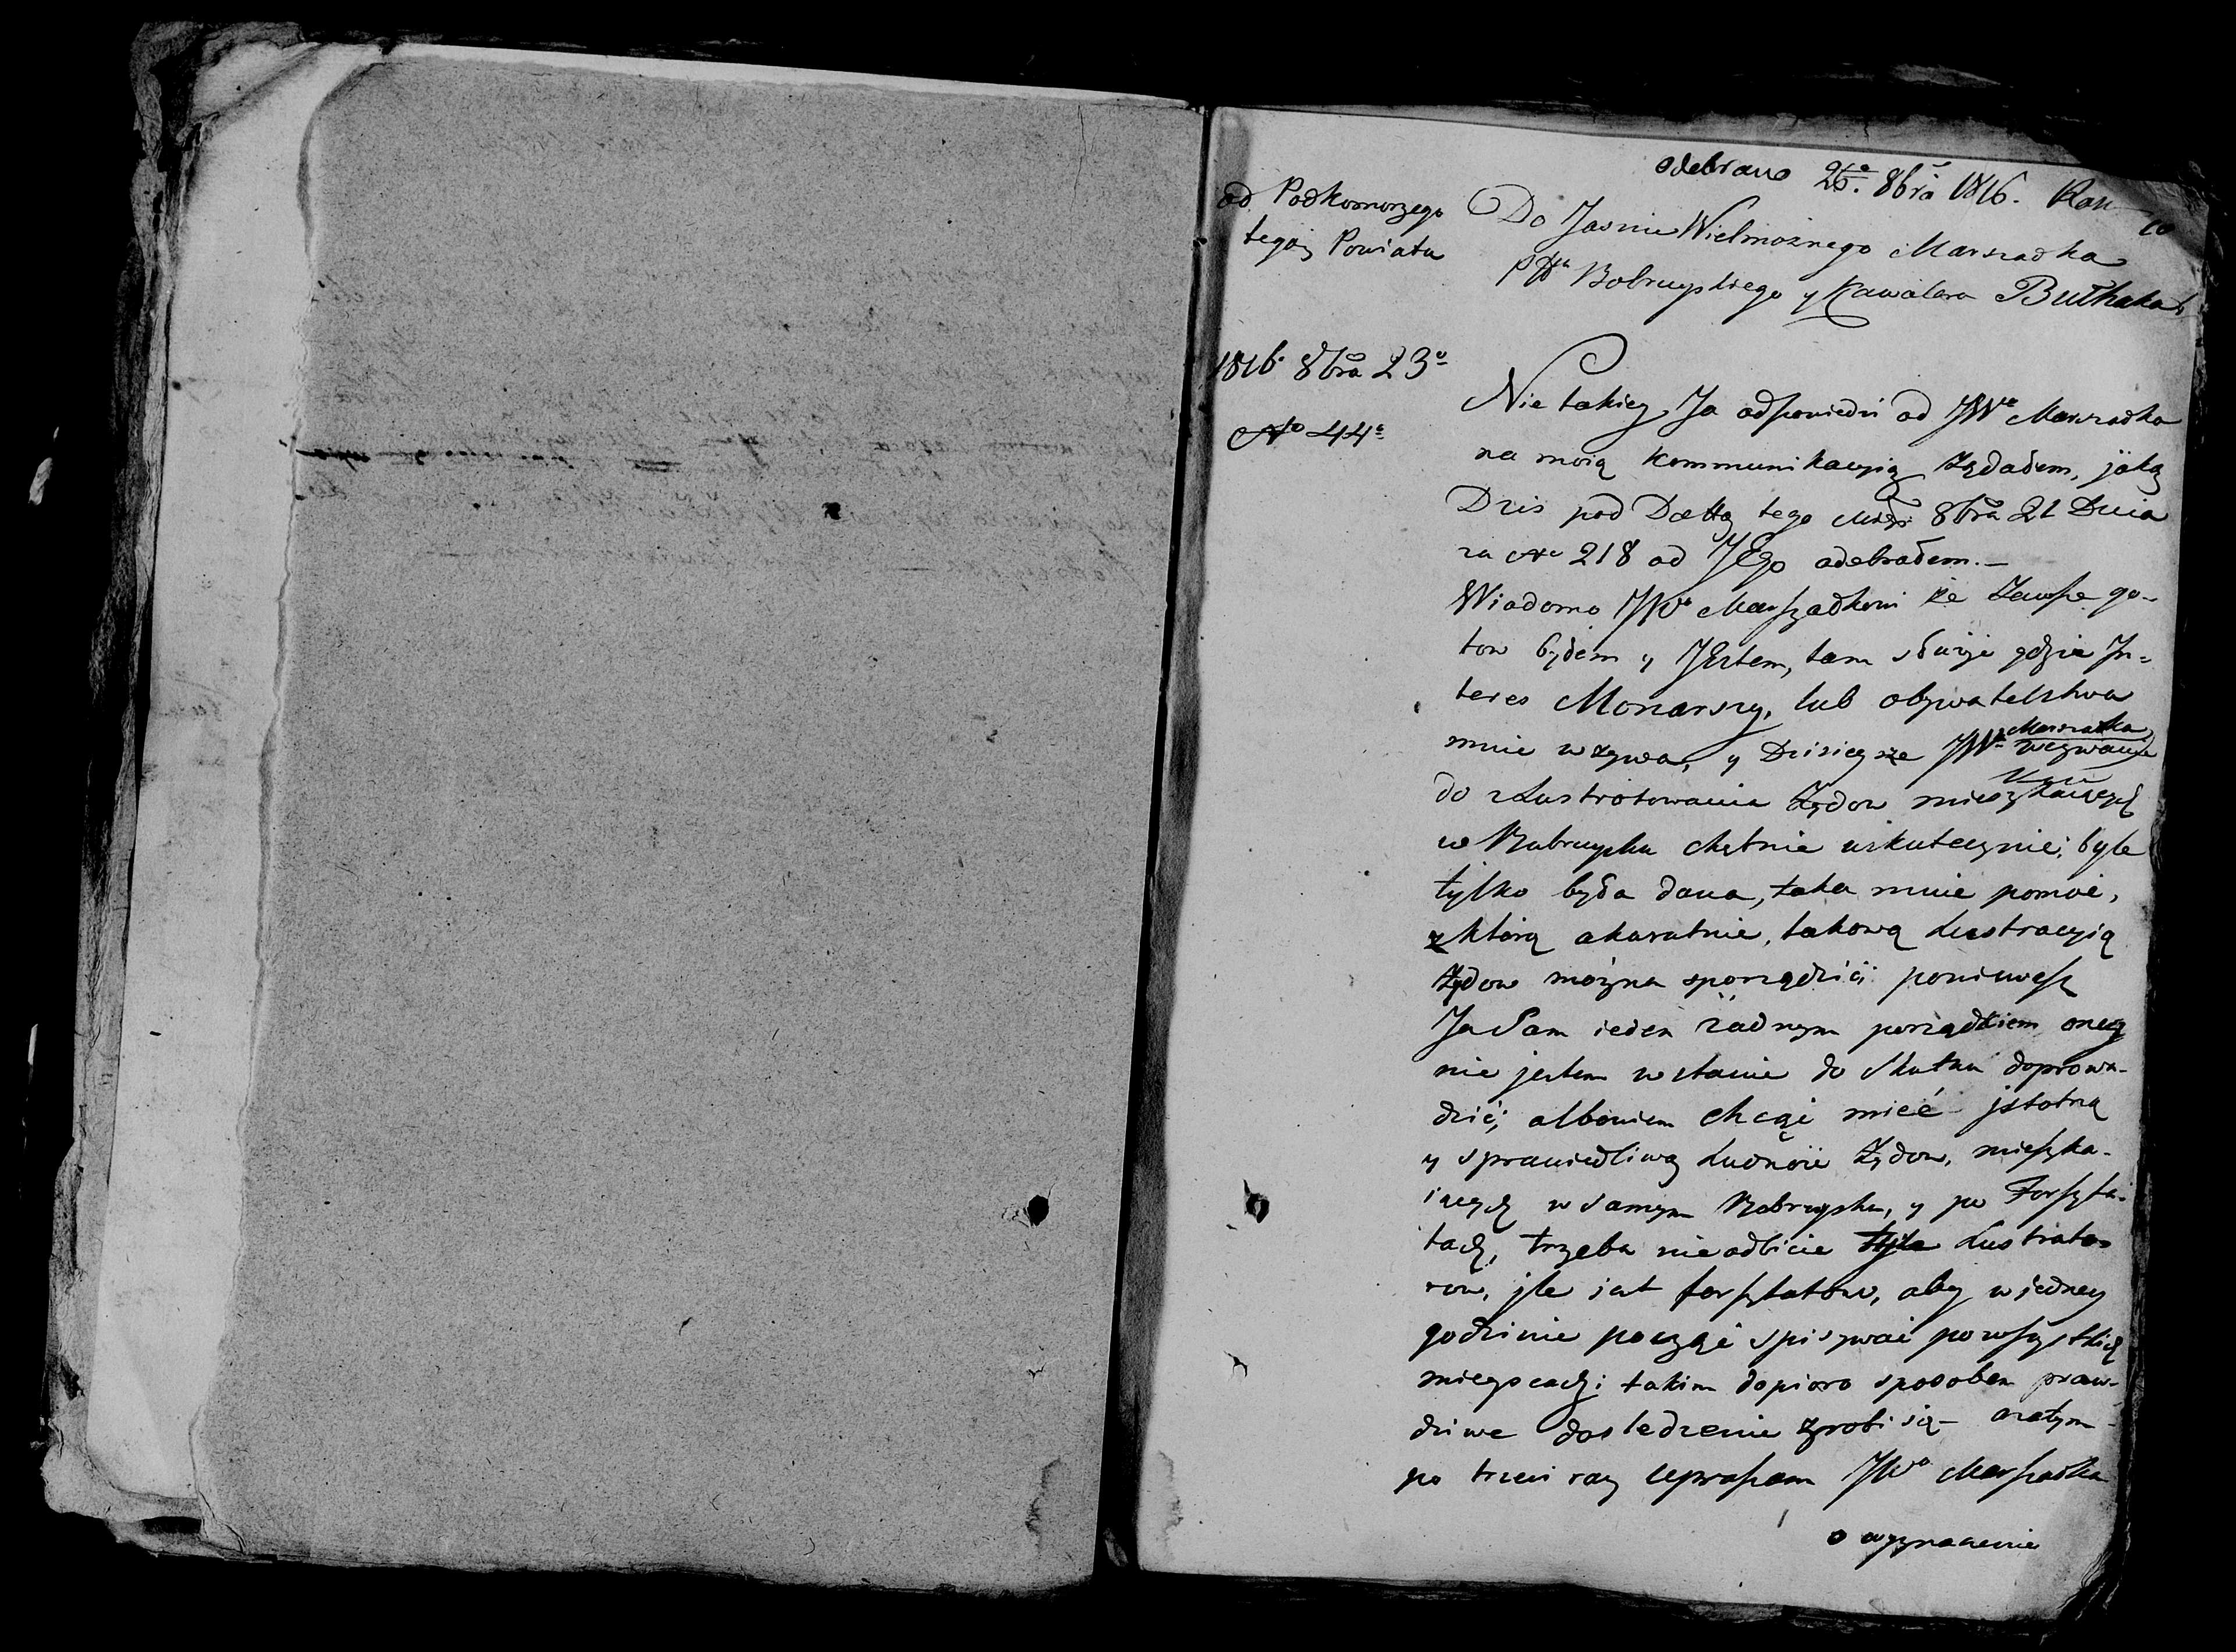 odebrano 26º 8bra 1816. Rok
od Podkomorzego
tegoż Powiatu
Do Jasnie Wielmożnego Marszałka
Pttu Bobruyskiego y Kawalera Bułhaka
1816 8bra 23º
No 44º
Nie takiey Ja odpowiedzi od JWo Marszałka
na moią kommunikacyią żądałem, jaką
Dzis pod Dattą tego Mca 8bra 21 Dnia
za No 218 od JEgo odebrałem.—
Wiadomo JWo Marszałkowi że Zawsze go-
tow byłem y JEstem, tam służyć gdzie In-
teres Monarszy, lub obywatelstwa
mnie wzywa, y Dzisieysze JWo Marszałka wezwanie
do zLustrotowania Żydow mieszkaiących
w Bobruysku chętnie uskutecznie, byle
tylko była dana, taka mnie pomoc,
z ktorą akuratnie, takową Lustracyią
Żydow można sporządzić; poniewasz
Ja Sam ieden żadnym porządkiem oney
nie jestem w stanie do Skutku doprowa-
dzić; albowiem chcąc mieć jstotną
y sprawiedliwą Ludność Żydow, mieszka-
iących w samym Bobruysku, y po Forszta-
tach, trzeba nieodbicie tyle Lustrato-
row, jle jest forsztatow, aby w jedney
godzinie począć spisywać po wszystkich
mieyscach; takim dopioro sposobem praw-
dziwe dosledzenie zrobi się — a zatym
po trzeci raz upraszam JWo Marszałka
o wyznaczenie